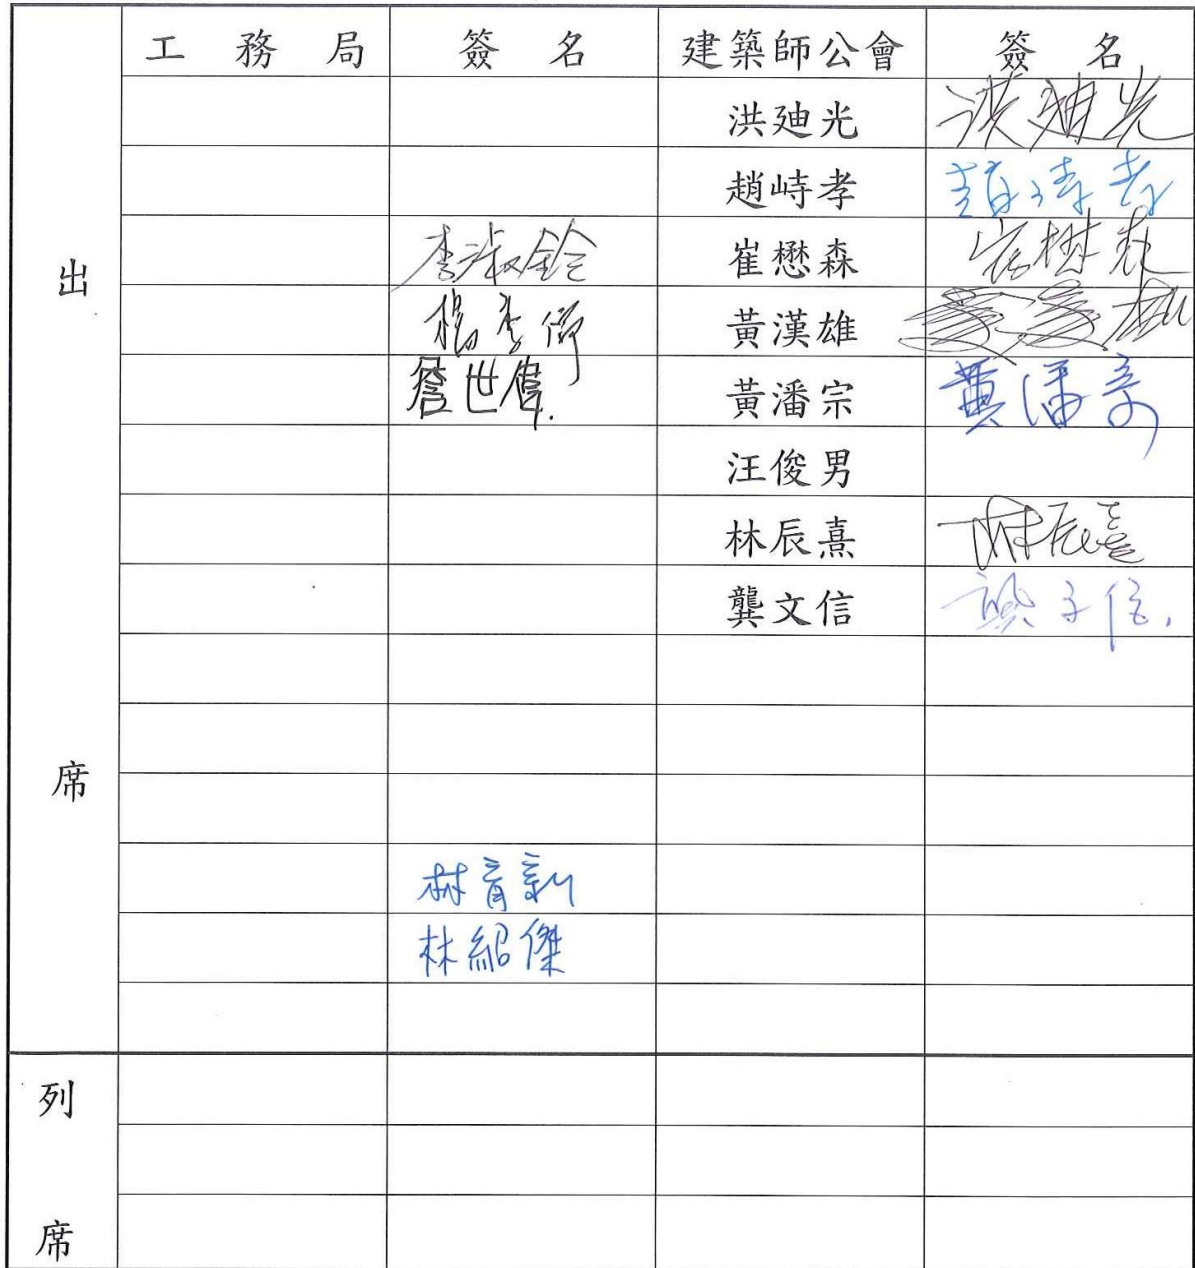 工務局 簽名 建築師公會 簽名
出席
洪廸光 洪廸光
趙峙孝 趙峙孝
李淑鈴 崔懋森 崔懋森
黃漢雄 黃漢雄
詹世偉. 黃潘宗 黃潘宗
汪俊男
林辰熹 林辰熹
龔文信 龔文信.
林育新
林紹傑
列席